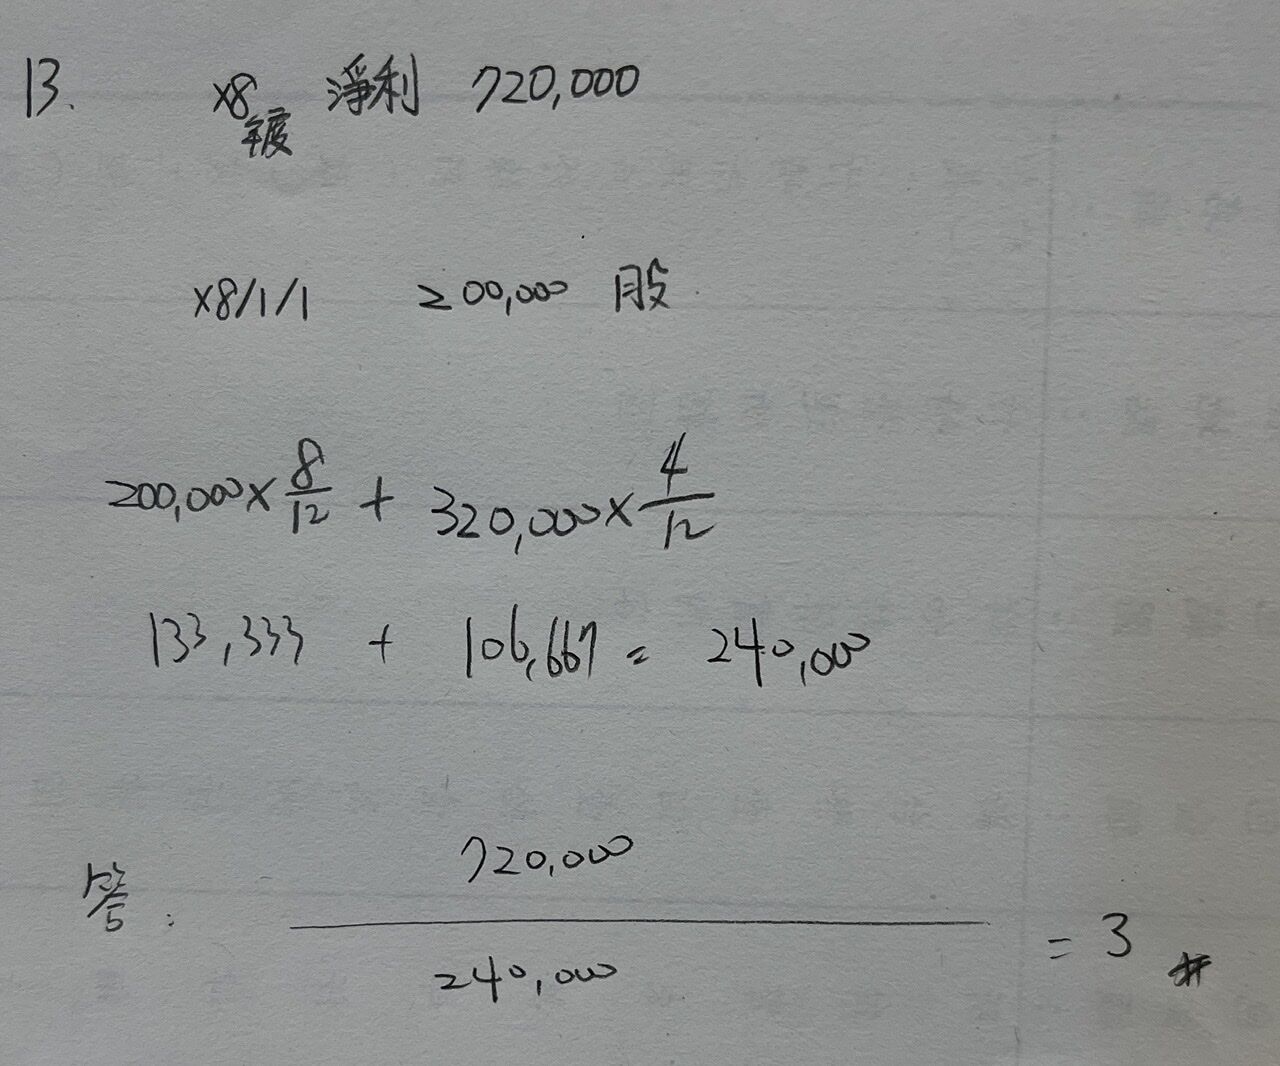 13. x8年度 淨利 720,000
x8/1/1 200,000 股
200,000 x 8/12 + 320,000 x 4/12
133,333 + 106,667 = 240,000
答: 720,000 / 240,000 = 3 #